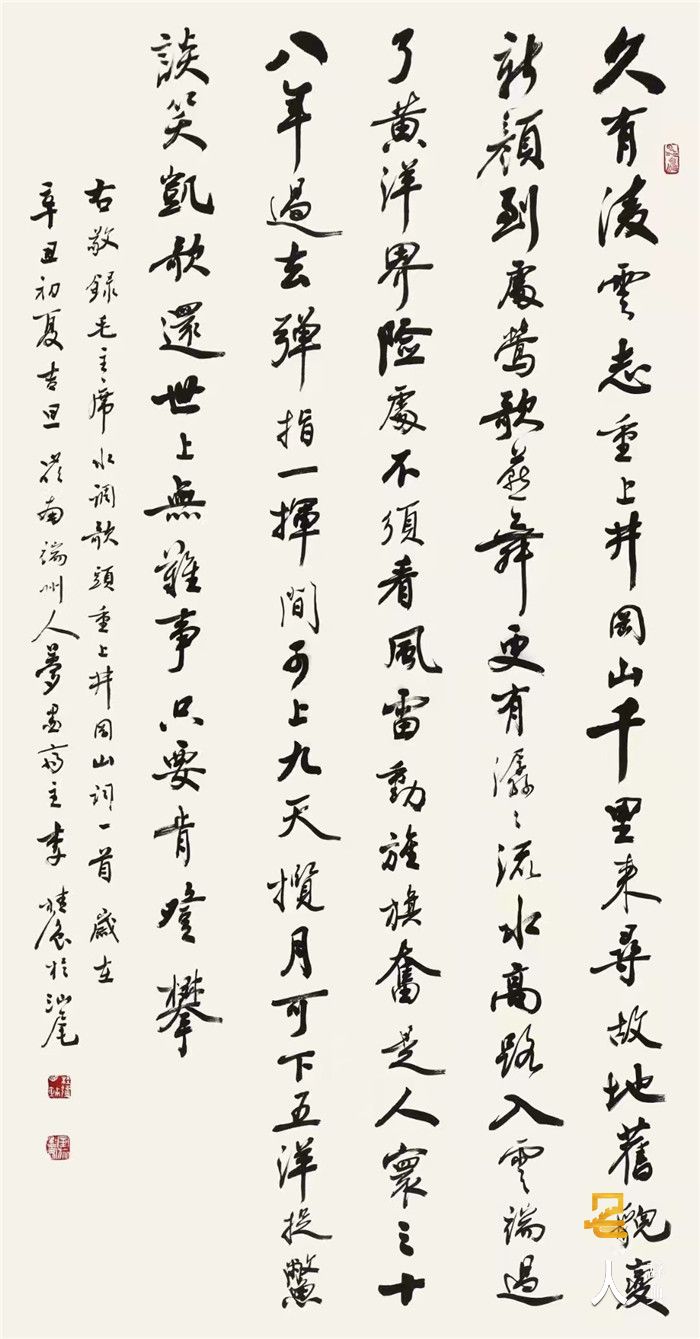 久有淩雲志重上井岡山千里来尋故地舊貌變
新顏到處鶯歌燕舞更有潺〻流水高路入雲端過
了黄洋界险處不須看風雷動旌旗奮是人寰三十
八年過去弹指一揮間可上九天攬月可下五洋捉鱉
談笑凱歌還世上無難事只要肯登攀
右敬録毛主席水调歌頭重上井岡山词一首歲在
辛丑初夏吉旦嶺南端州人夢齋主李於汕尾
人